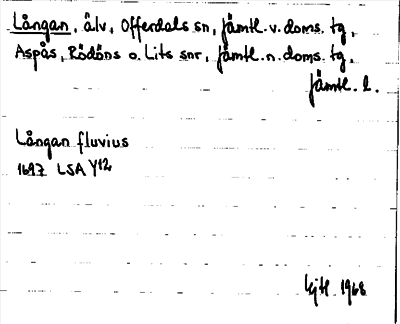 Långan, älv, Offerdals sn, Jämtl. v. doms. tg,
Aspås, Rödöns o. Lits snr, Jämtl. n. doms. tg,
Jämtl. l.
Långan fluvius
1697 LSA Y12
1968